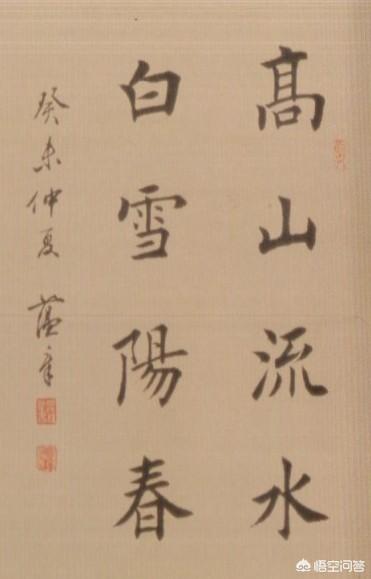 高山流水
白雪陽春
癸未仲夏
悟空问答